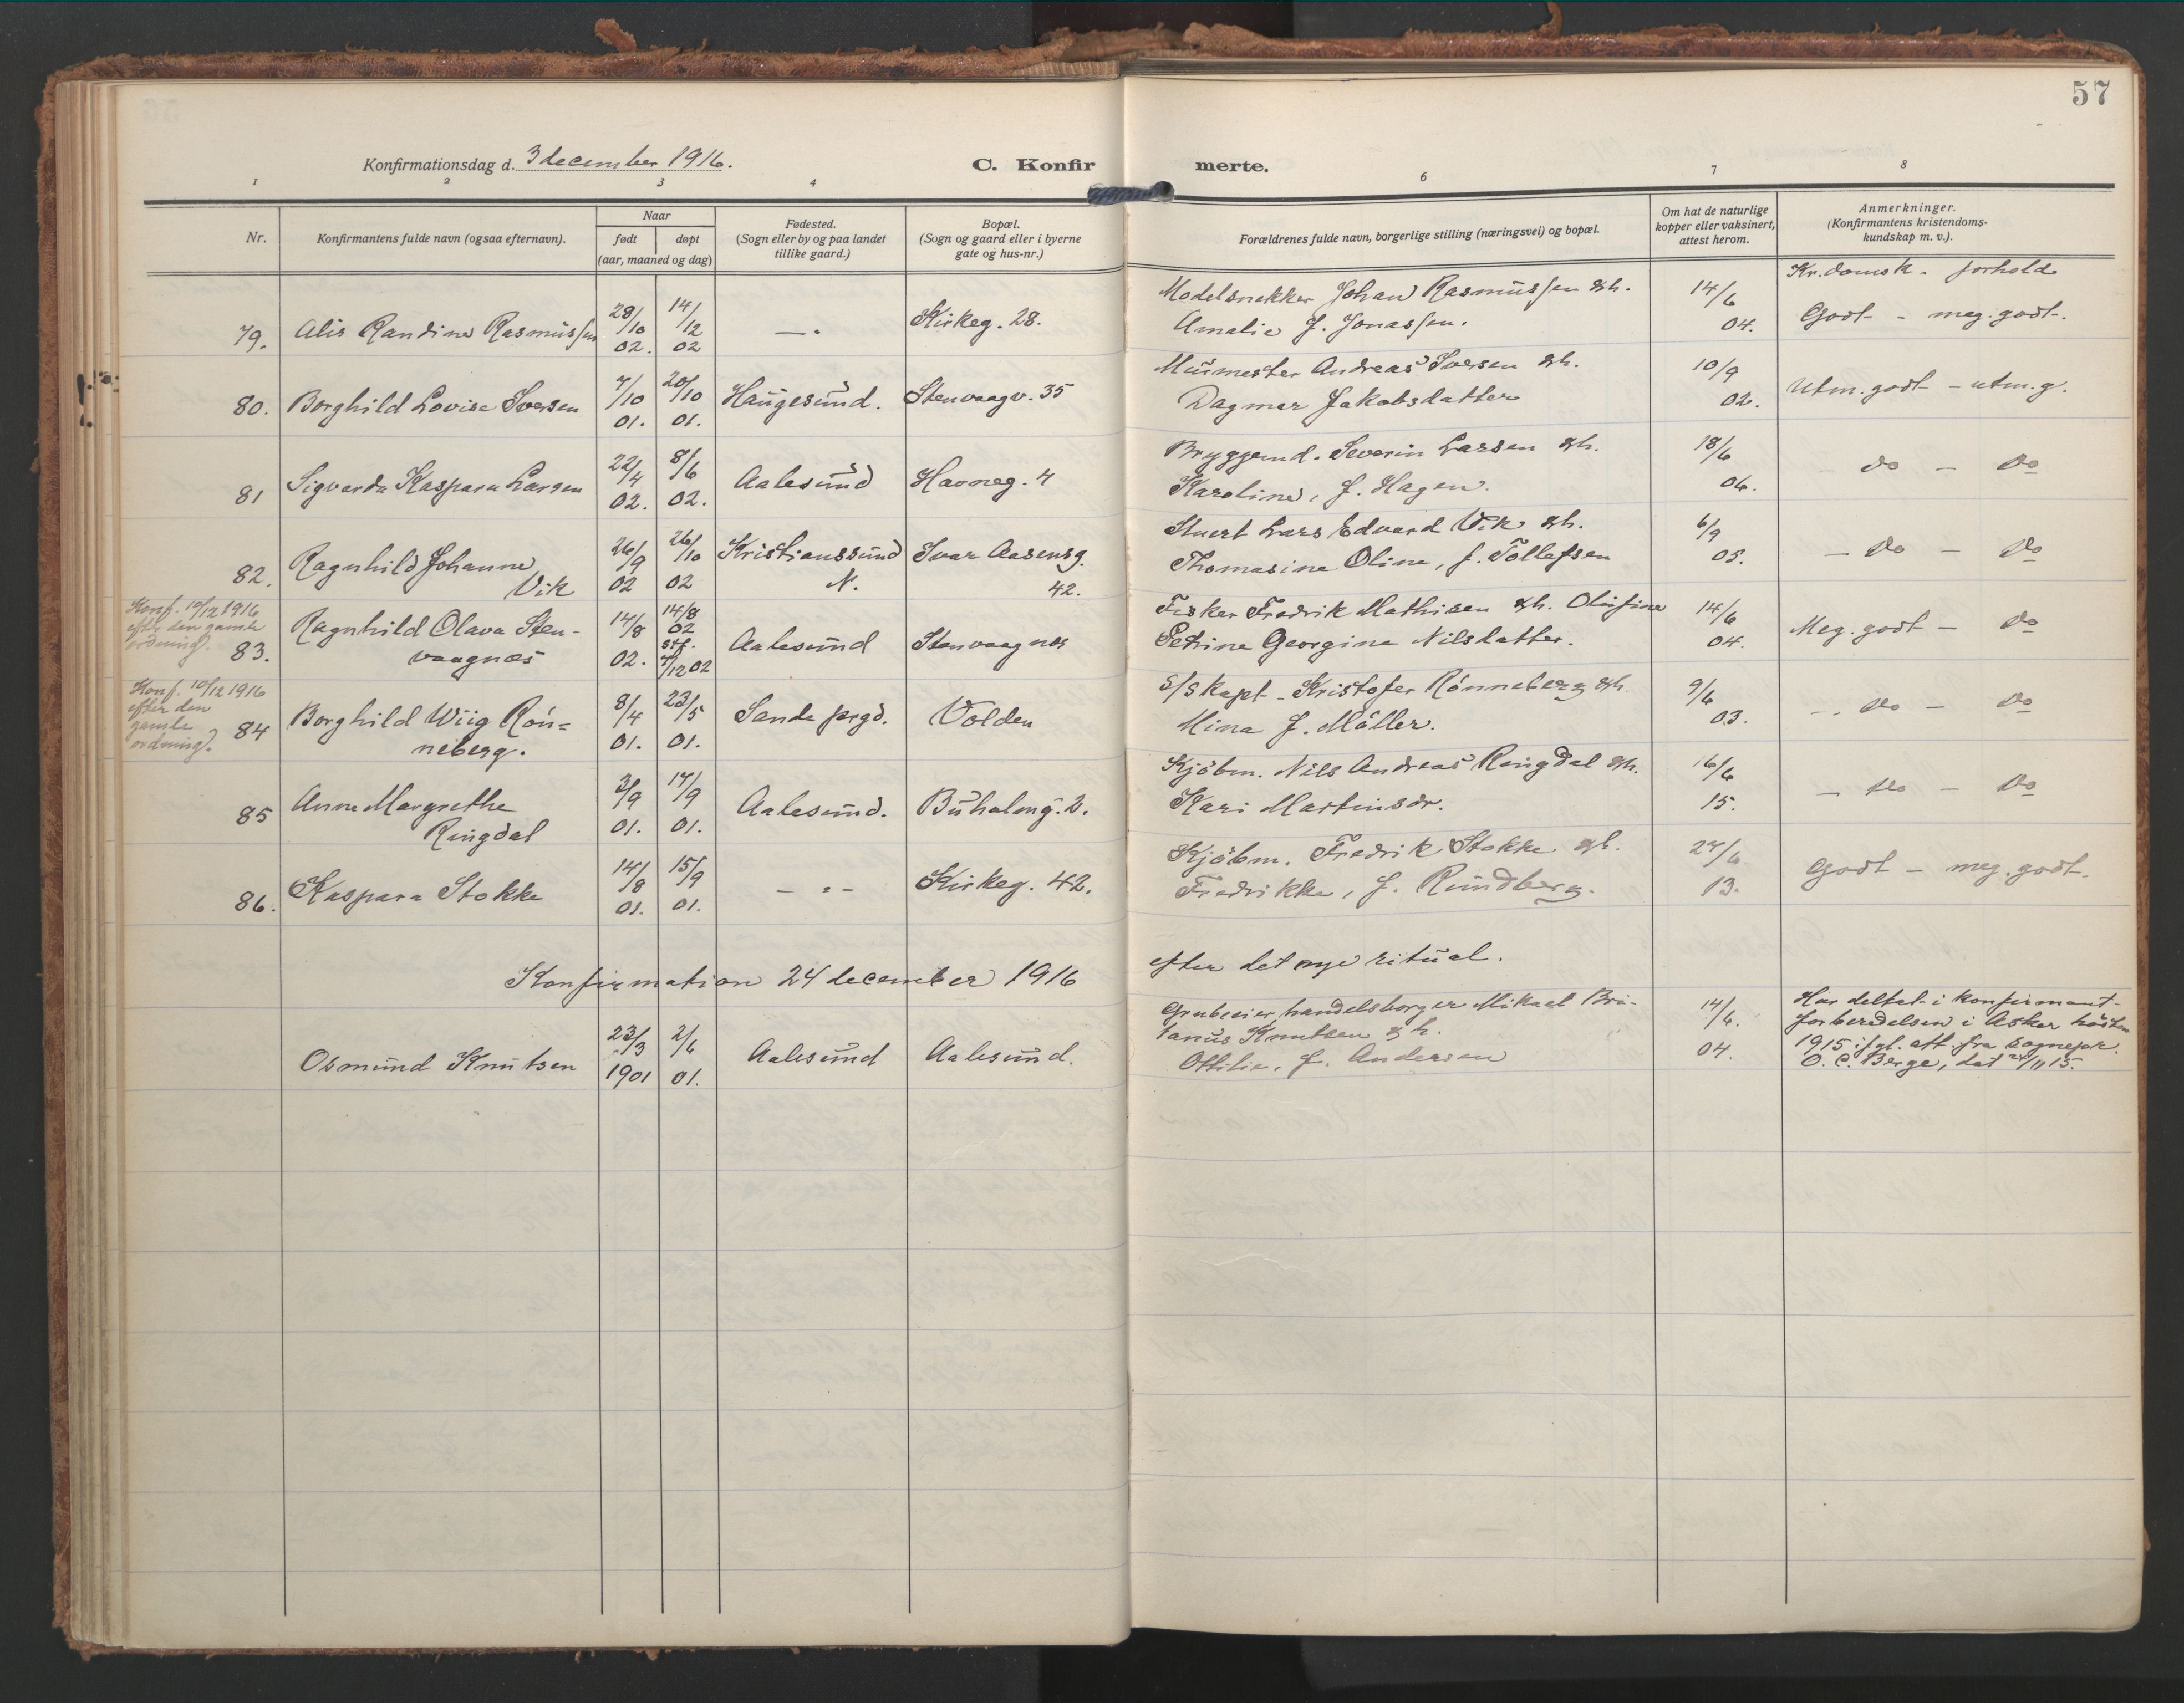 57
Konfirmationsdag d. 3 december 1916.
C. Konfir merte.
1 2 3 4 6 7 8
Nr.
Konfirmantens fulde navn (ogsaa efternavn).
Naar
født døpt
(aar, maaned og dag)
Fødested.
(Sogn eller by og paa landet
tillike gaard.)
Bopæl.
(Sogn og gaard eller i byerne
gate og hus-nr.)
Forældrenes fulde navn, borgerlige stilling (næringsvei) og bopæl.
Om hat de naturlige
kopper eller vaksinert,
attest herom.
Anmerkninger.
(Konfirmantens kristendoms-
kundskap m. v.).
Kr.domsk. forhold
79. Alis Randine Rasmussen 28/10 02. 14/12 02 — " Kirkeg. 28.
Modelsnekker Johan Rasmussen &h.
Amalie f. Jonassen.
14/6 04. Godt - meg. godt.
80. Borghild Lovise Iversen 7/10 01. 20/10 01. Haugesund. Stenvaagv. 35
Murmester Andreas Iversen &h.
Dagmar Jakobsdatter
10/9 02. Utm. godt - utm. g.
81 Sigvarda Kaspara Larsen 22/4 02. 8/6 02. Aalesund Havneg. 4
Bryggemd. Severin Larsen &h.
Karoline, f. Hagen.
18/6 06. do - do
82. Ragnhild Johanne
Vik 26/9 02 26/10 02 Kristianssund
N. Ivar Aasensg.
42.
Stuert Lars Edvard Vik &h.
Thomasine Oline, f. Tollefsen
6/9 05. - do - do
Konf. 10/12 1916
efter den gamle
ordning.
83. Ragnhild Olava Sten-
vaagnes 14/8 02. 14/8 02 stf. 7/12 02 Aalesund Stenvaagnes
Fisker Fredrik Mathisen &h. Olufine
Petrine Georgine Nilsdatter.
14/6 04. Meg. godt - do
Konf. 10/12 1916
efter den
gamle
ordning.
84 Borghild Wiig Rön-
neberg. 8/4 01. 23/5 01. Sande prgd. Volden
S/S kapt. Kristofer Rönneberg &h
Mina f. Möller.
9/6 03. - do - do
85 Anne Margrethe
Ringdal 3/9 01. 17/9 01. Aalesund. Buholmg. 2.
Kjöbm. Nils Andreas Ringdal &h.
Kari Martinsdr.
16/6 15. - do - do
86. Kaspara Stokke 14/8 01. 15/9 01. - " - Kirkeg. 42.
Kjöbm. Fredrik Stokke &h.
Fredrikke, f. Rundberg.
24/6 13. Godt - meg. godt.
Konfirmation 24 december 1916 efter det nye ritual.
Osmund Knutsen 23/3 1901 2/6 01. Aalesund Aalesund.
Grubeeier, handelsborger Mikael Bri-
tanus Knutsen &h.
Ottilie, f. Andersen
14/6. 04.
Har deltat i konfirmant-
forberedelsen i Asker hösten
1915 ifgl. att. fra sognepr.
O. C. Berge, dat 24/11 15.